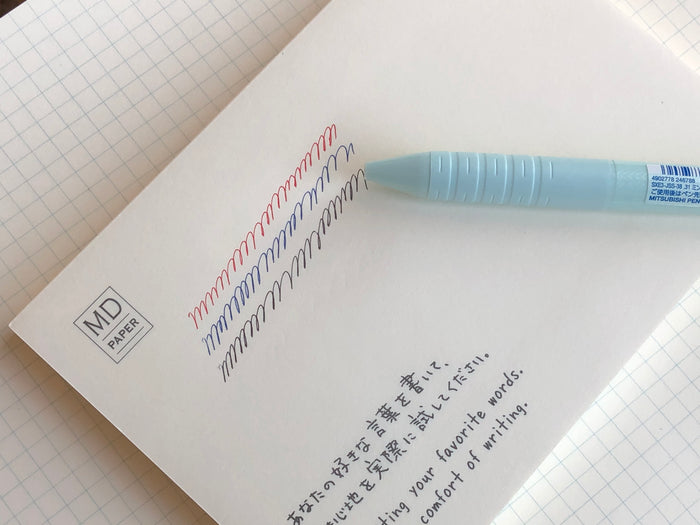 MD
PAPER
4902778 248788
SXE3-JSS-38 .31 ミン
ご使用後はペン先
MITSUBISHI PEN
あなたの好きな言葉を書いて、
心地を実際に試してください。
ting your favorite words.
comfort of writing.